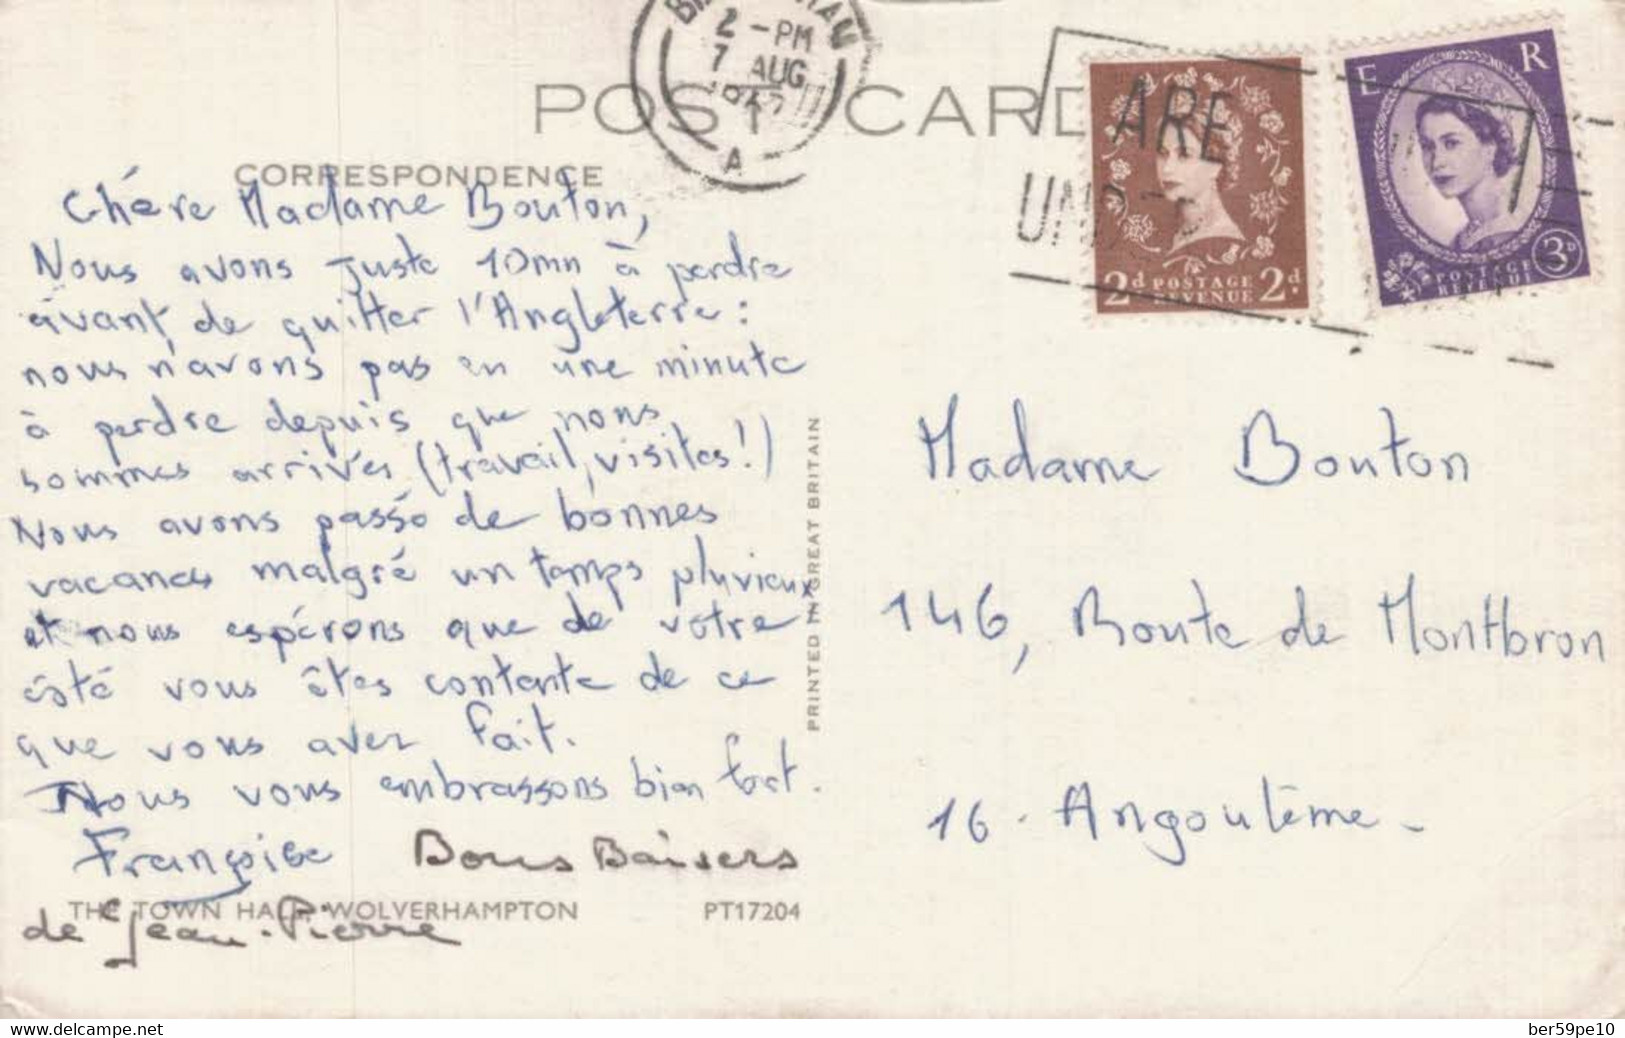 POST CARD
2 - PM
7 AUG
A
ARE
E R
2d POSTAGE 2d
REVENUE
POSTAGE 3D
REVENUE
CORRESPONDENCE
Chére Madame Bouton,
Nous avons juste 10mn à perdre
avant de quitter l'Angleterre :
nous n'avons pas eu une minute
à perdre depuis que nous
sommes arrivés (travail, visites!)
Nous avons passé de bonnes
vacances malgré un temps pluvieux
et nous espérons que de votre
côté vous êtes contente de ce
que vous avez fait.
Nous vous embrassons bien fort.
Françoise Bons Baisers
de Jean-Pierre
THE TOWN HALL WOLVERHAMPTON PT17204
PRINTED IN GREAT BRITAIN
Madame Bouton
146, Route de Montbron
16 - Angoulême -
delcampe.net
ber59pe10